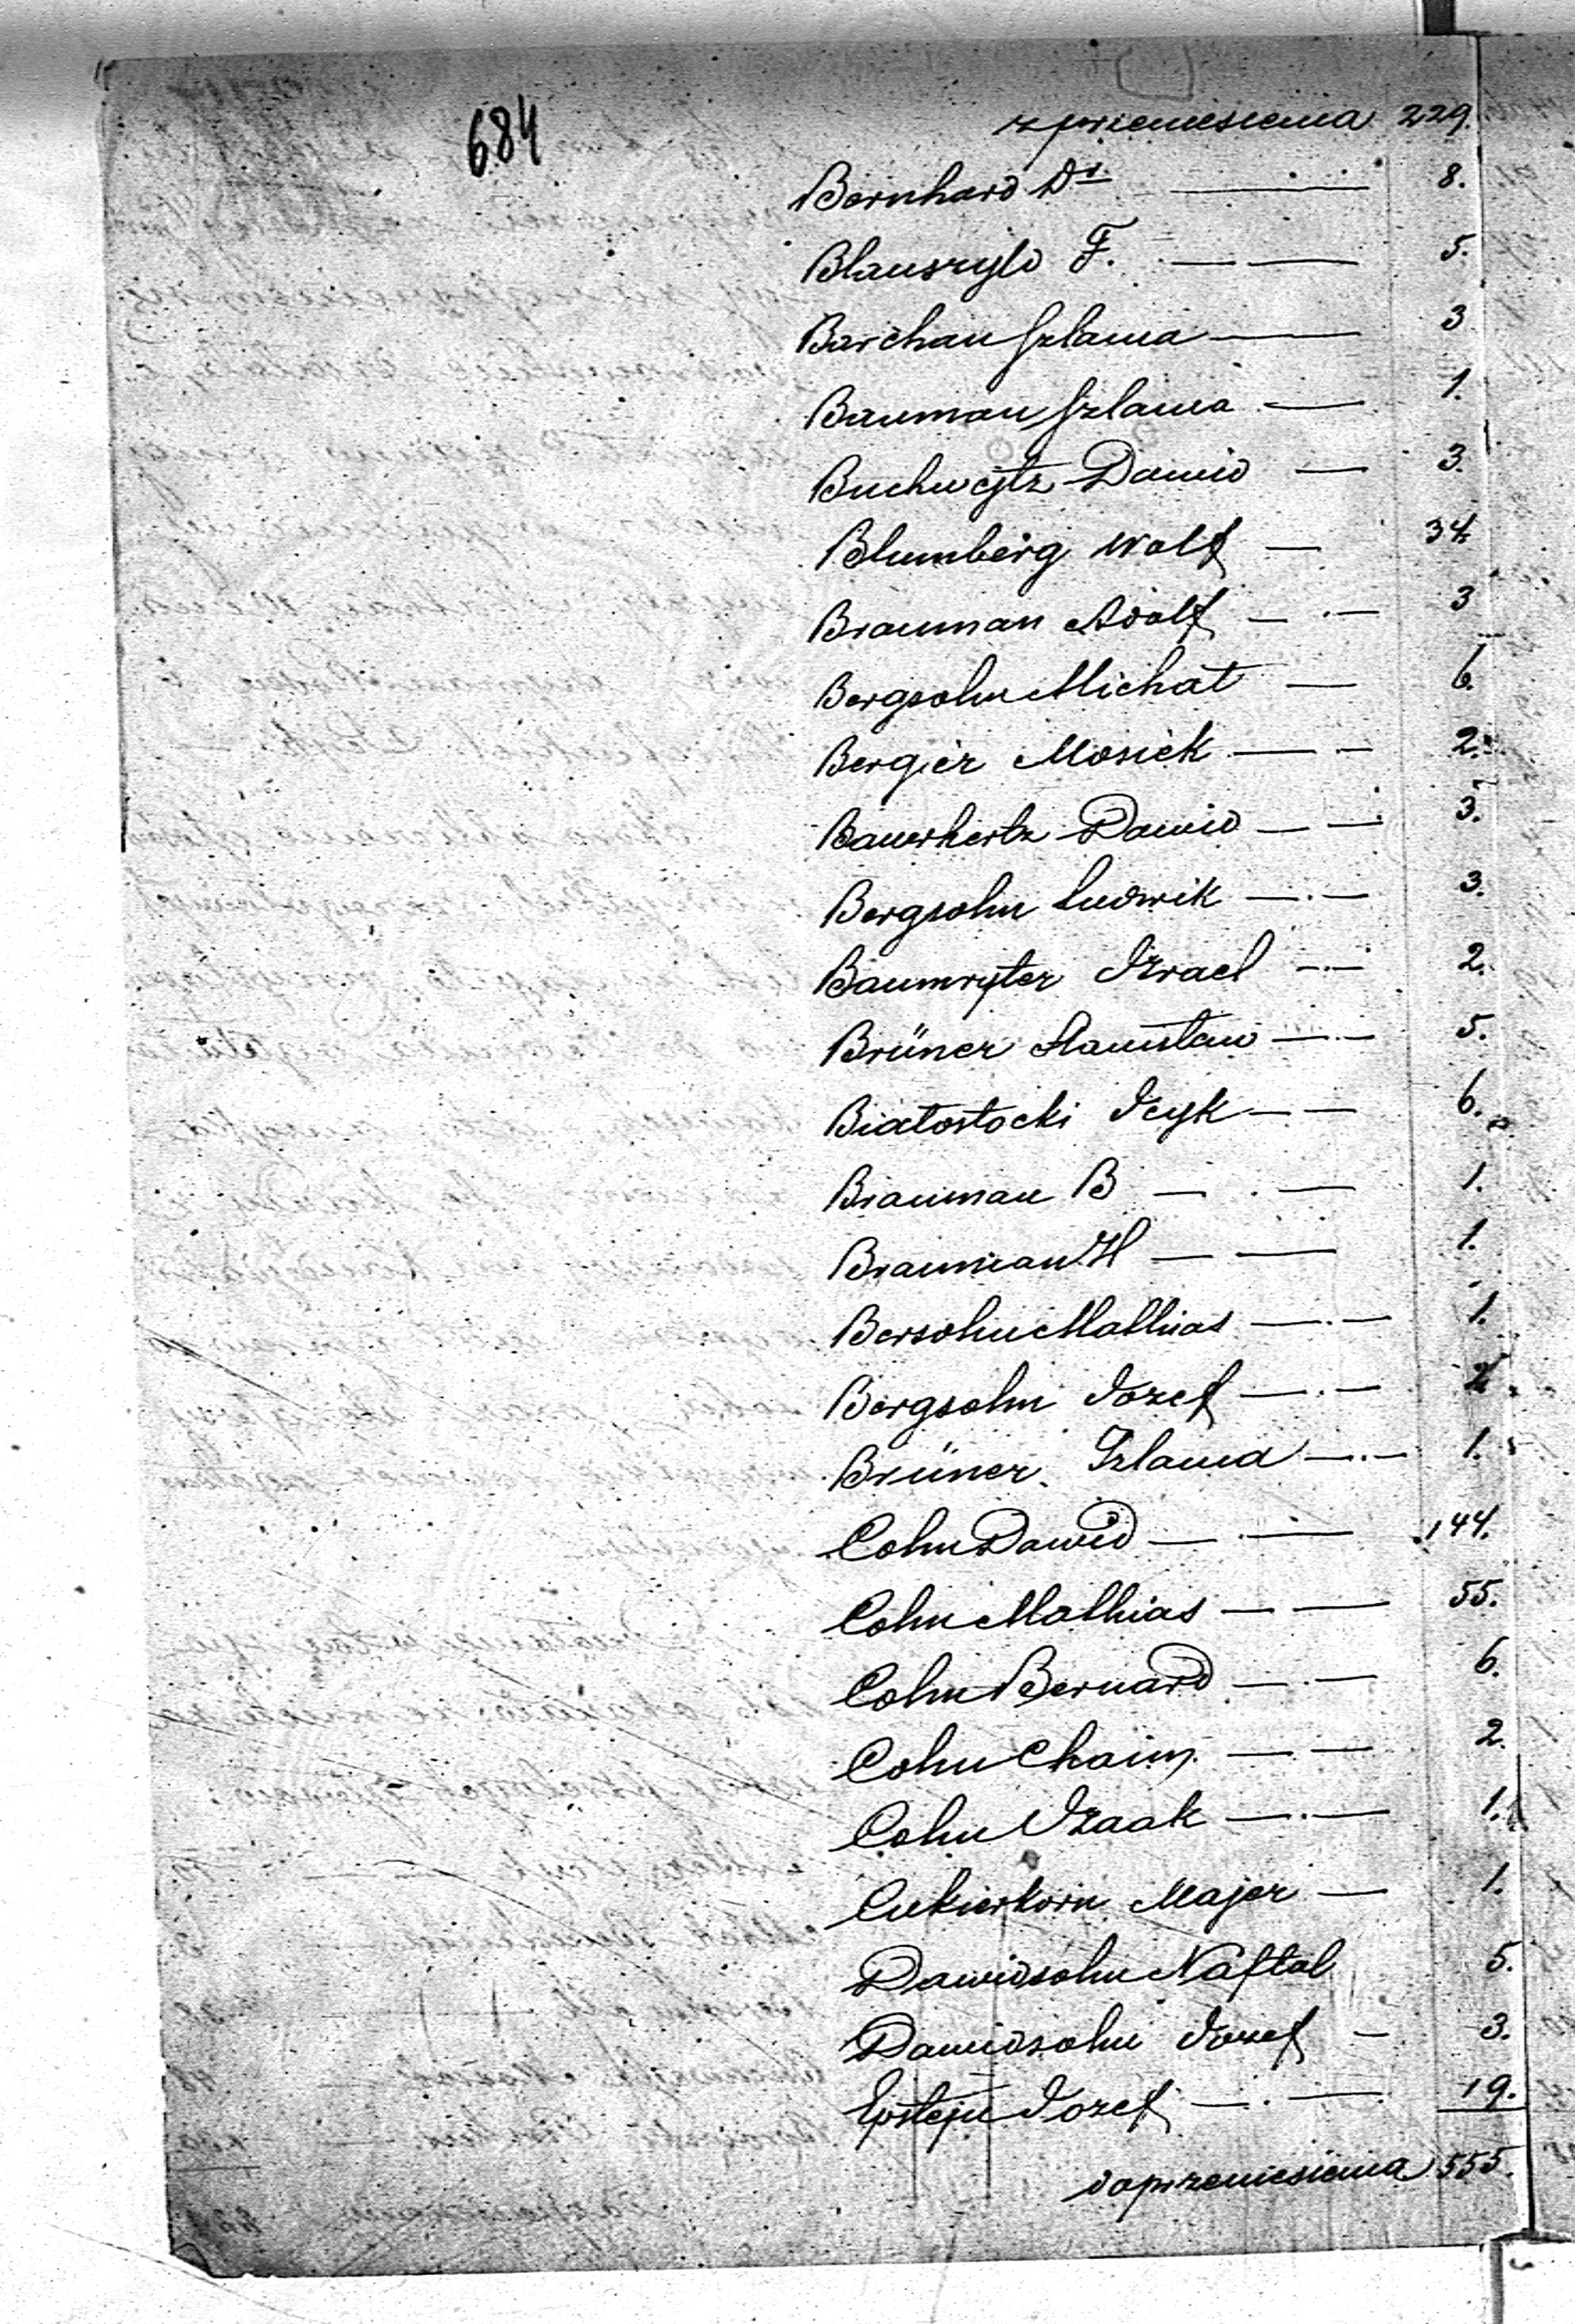 684
z przeniesienia 229.
Bernhard Dr. 8.
Blauszyld F. 5.
Barchan Szlama 3
Bauman Szlama 1.
Buchwejtz Dawid 3.
Blumberg Wolf 34.
Brauman Adolf 3
Bergsohn Michał 6.
Bergier Mosiek 2.
Bauerhertz Dawid 3.
Bergsohn Ludwik 3.
Baumryter Izrael 2.
Brüner Stanisław 5.
Białostocki Icyk 6.
Brauman B 1.
Brauman H 1.
Bersohn Mathias 1.
Bergsohn Józef 2
Brüner Szlama 1.
Cohn Dawid 144.
Cohn Mathias 55.
Cohn Bernard 6.
Cohn Chaim 2.
Cohn Izaak 1.
Cukierkorn Majer 1.
Dawidsohn Naftal 5.
Dawidsohn Józef 3.
Epstejn Józef 19.
do przeniesienia 555.